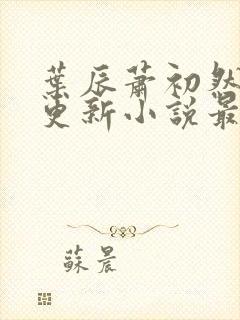 葉辰蕭初然
更新小說最
蘇晨